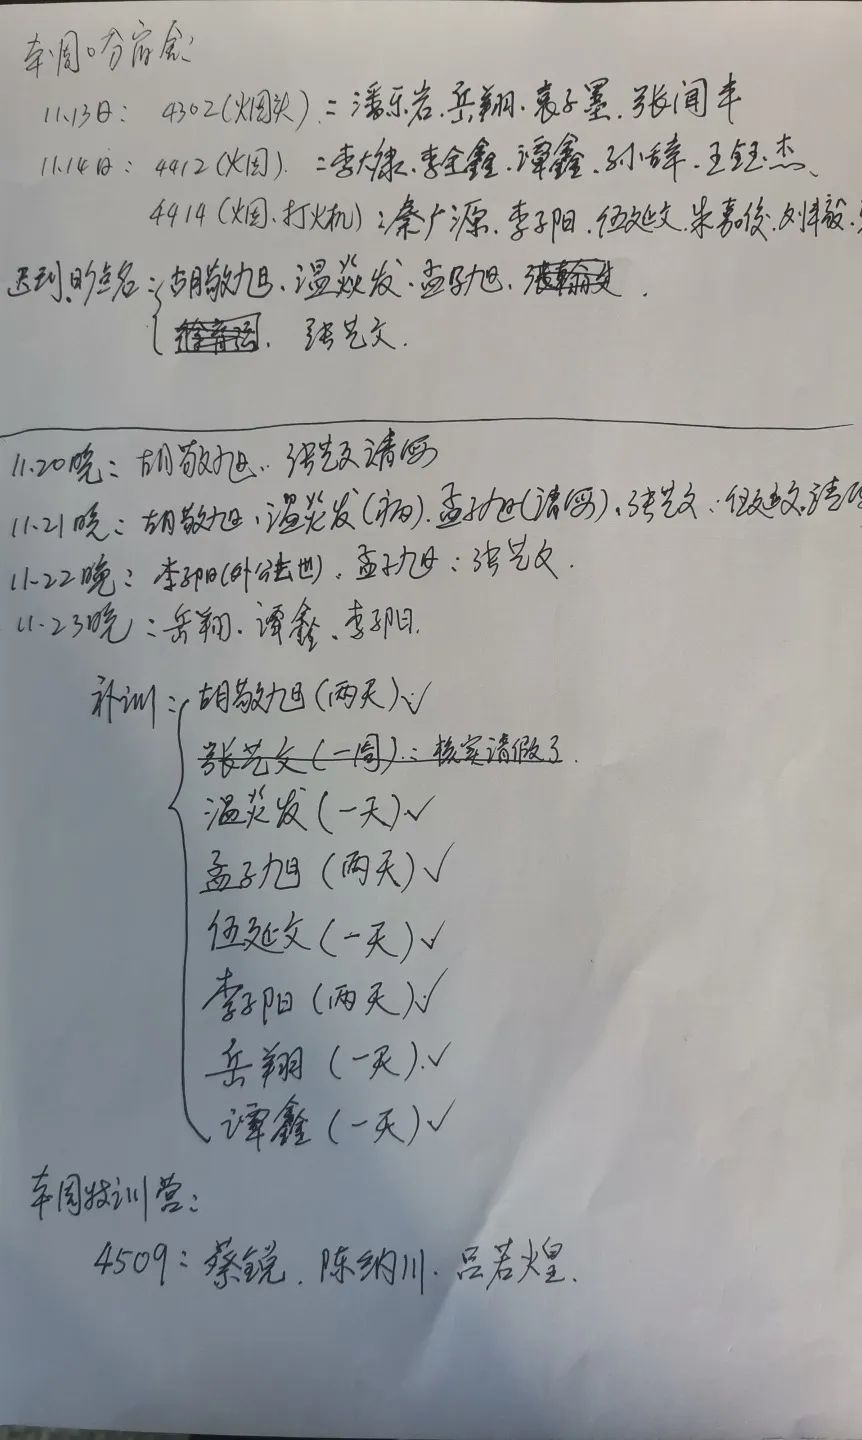 本周吸烟宿舍:
11.13日: 4302(烟头): 潘乐岩、岳翔、袁子墨、张闻丰
11.14日: 4412(烟): 李大康、李全鑫、谭鑫、孙辞、王钰杰、
4414(烟、打火机): 秦广源、李子阳、伍延文、朱嘉俊、刘丰毅、
迟到、晚点名: 胡敬旭、温焱发、孟子旭、
张艺文.
11.20晚: 胡敬旭、张艺文请假
11.21晚: 胡敬旭、温炎发(病)、孟子旭(请假)、张艺文、伍延文请
11.22晚: 李子阳(外公去世)、孟子旭、张艺文.
11.23晚: 岳翔、谭鑫、李子阳.
补训: 胡敬旭(两天)✓
张艺文(一周): 核实请假了.
温炎发(一天)✓
孟子旭(两天)✓
伍延文(一天)✓
李子阳(两天)✓
岳翔(一天)✓
谭鑫(一天)✓
本周特训营:
4509: 蔡锐、陈纳川、吕若煌.